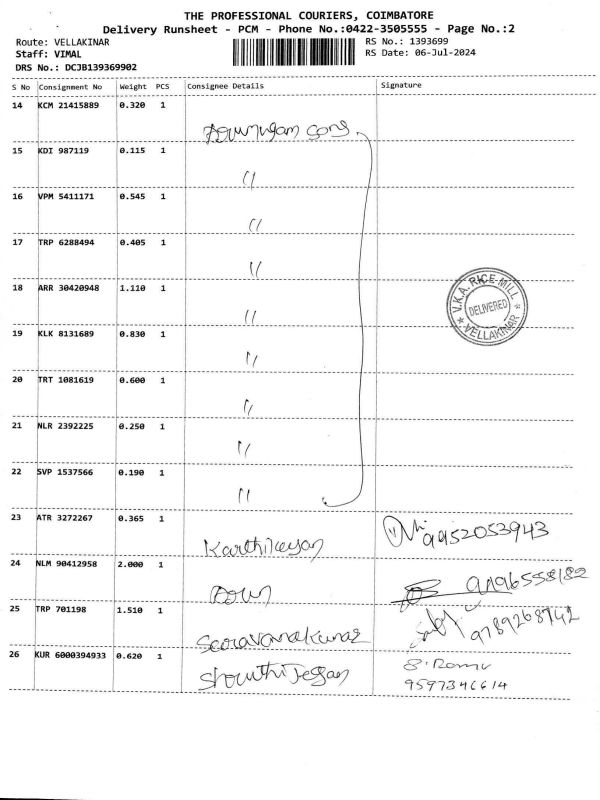 THE PROFESSIONAL COURIERS, COIMBATORE
Delivery Runsheet - PCM - Phone No.:0422-3505555 - Page No.:2
Route: VELLAKINAR RS No.: 1393699
Staff: VIMAL RS Date: 06-Jul-2024
DRS No.: DCJB139369902
S No Consignment No Weight PCS Consignee Details Signature
14 KCM 21415889 0.320 1
15 KDI 987119 0.115 1
"
16 VPM 5411171 0.545 1
"
17 TRP 6288494 0.405 1
"
18 ARR 30420948 1.110 1
"
V.K.A. RICE MILL
DELIVERED
VELLAKINAR
19 KLK 8131689 0.830 1
"
20 TRT 1081619 0.600 1
"
21 NLR 2392225 0.250 1
"
22 SVP 1537566 0.190 1
"
23 ATR 3272267 0.365 1
Karthikeyan 9952053943
24 NLM 90412958 2.000 1
25 TRP 701198 1.510 1
Saravanakumar 9789268742
26 KUR 6000394933 0.620 1
9597346614